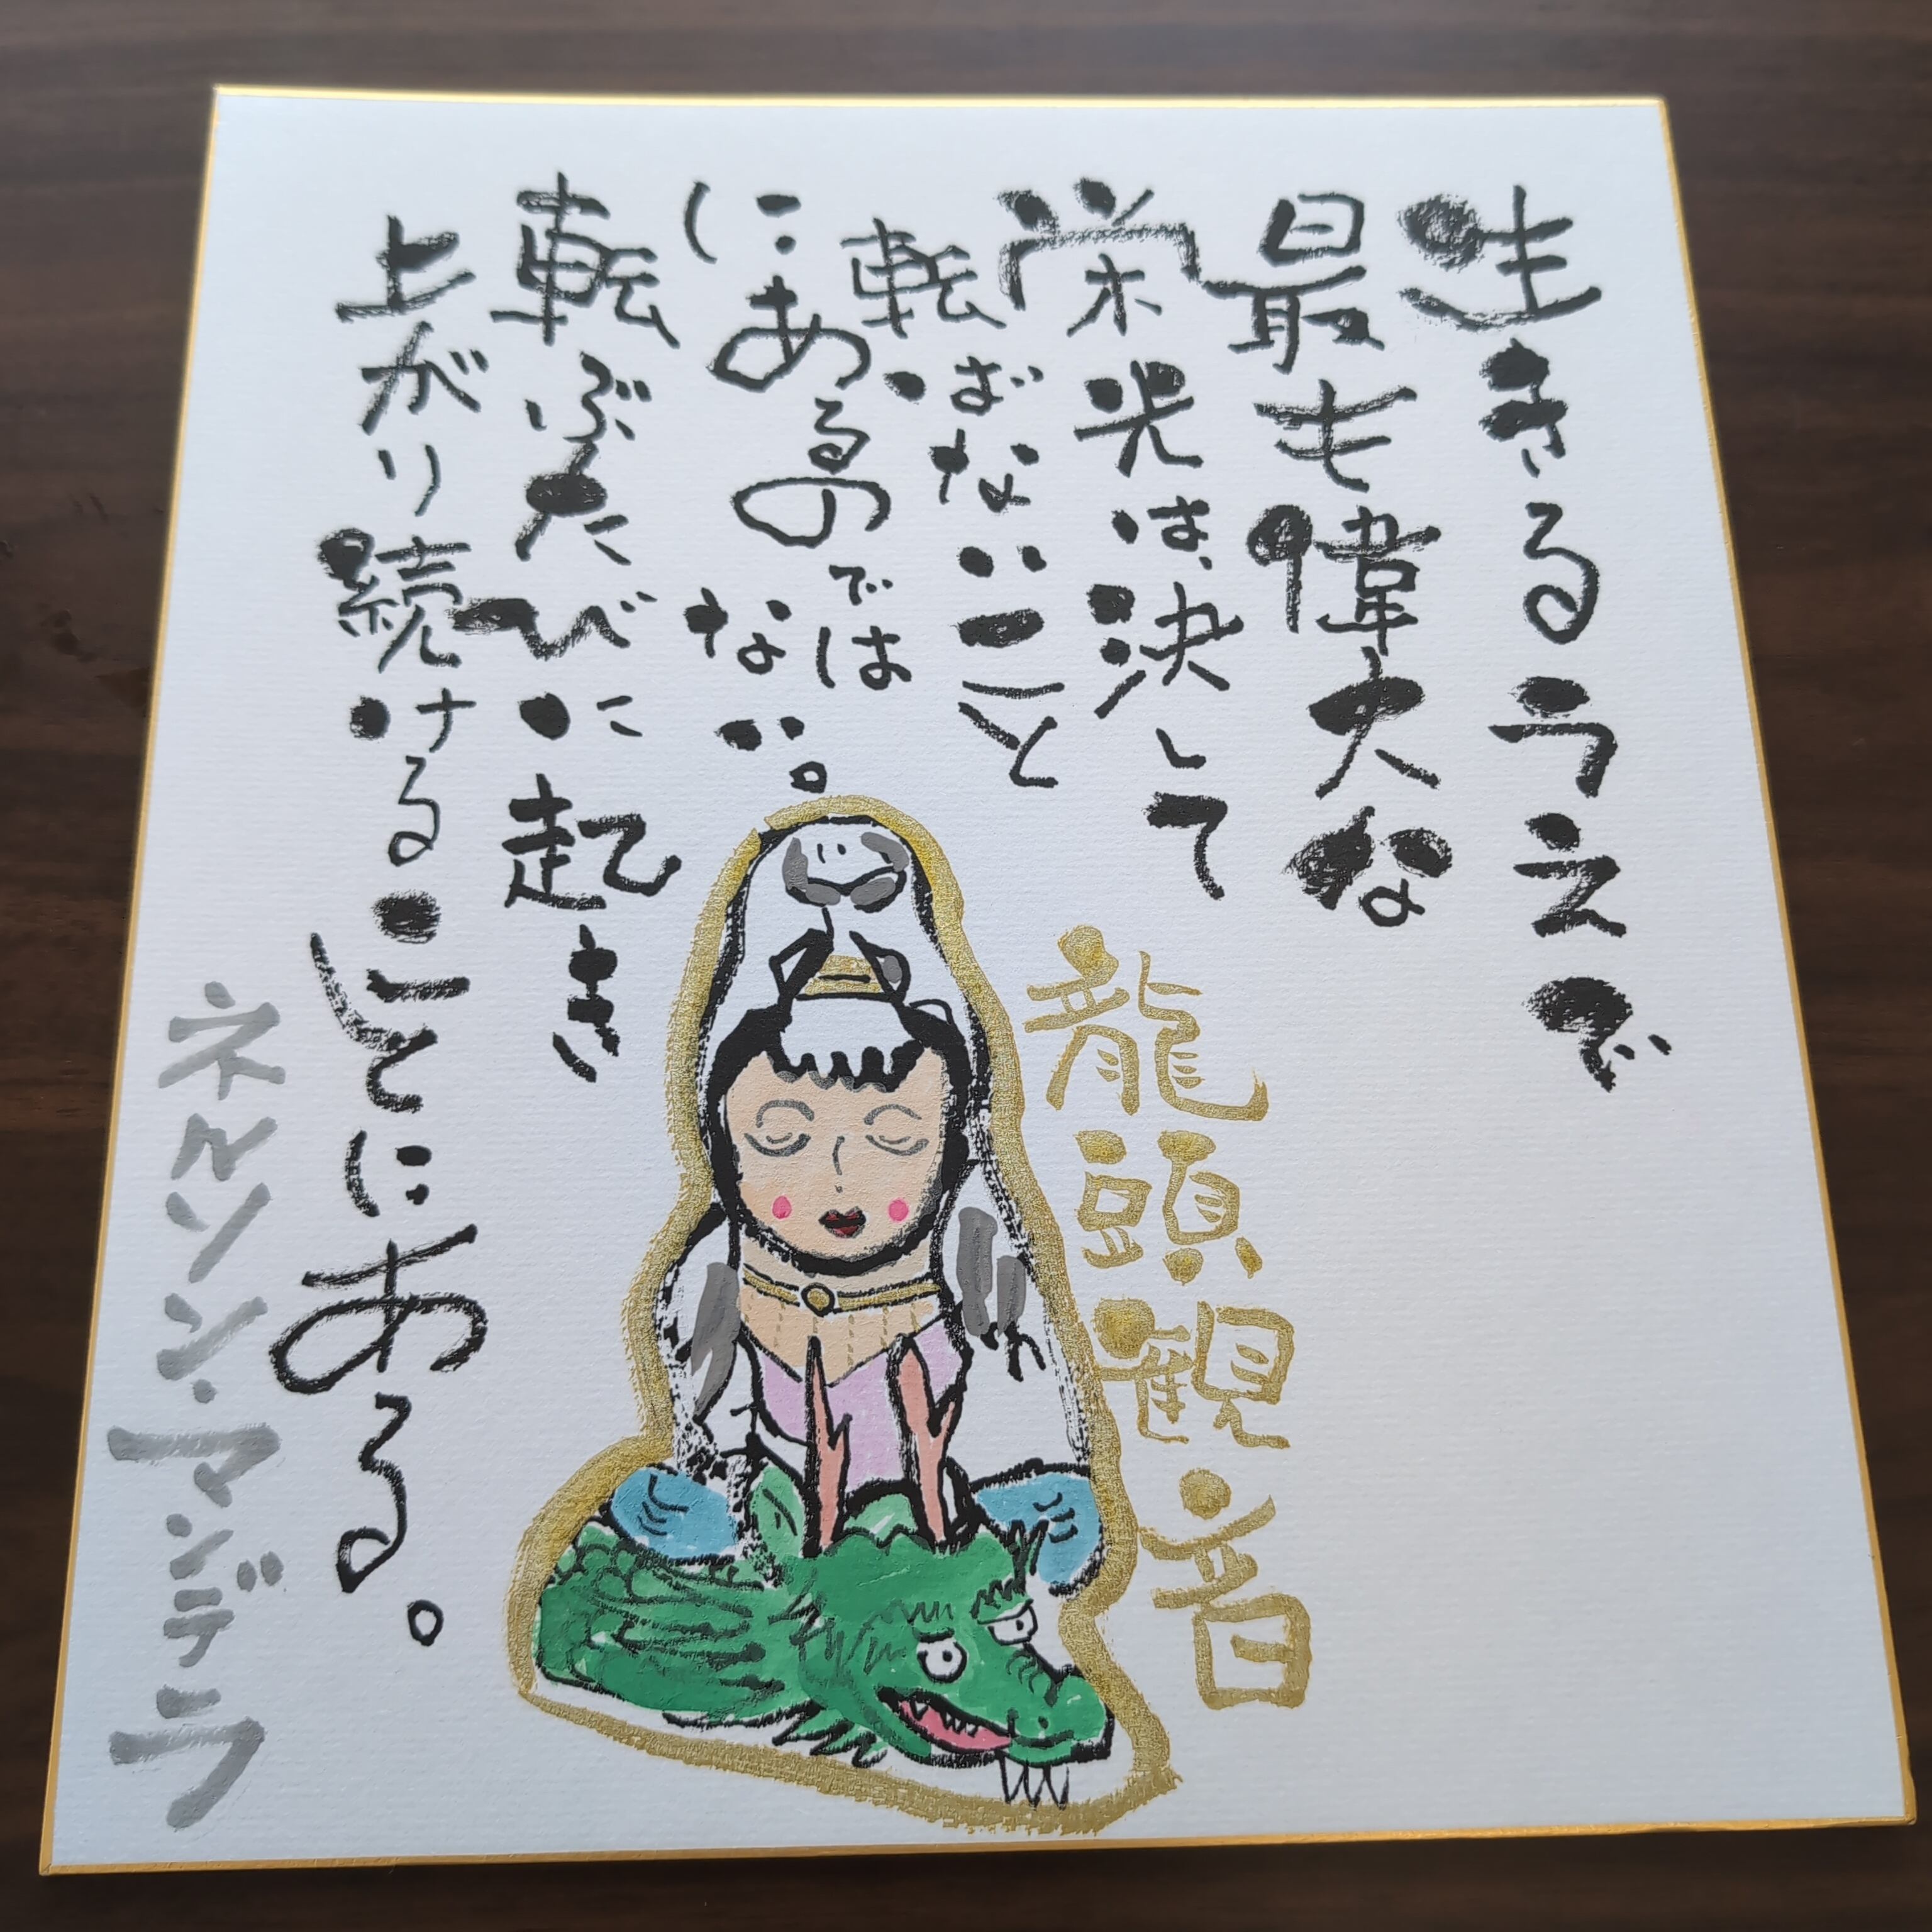 生きるうえで
最も偉大な
栄光は、決して
転ばないこと
にあるのでは
ない。
転ぶたびに起き
上がり続けることにある。
ネルソン・マンデラ
龍頭観音